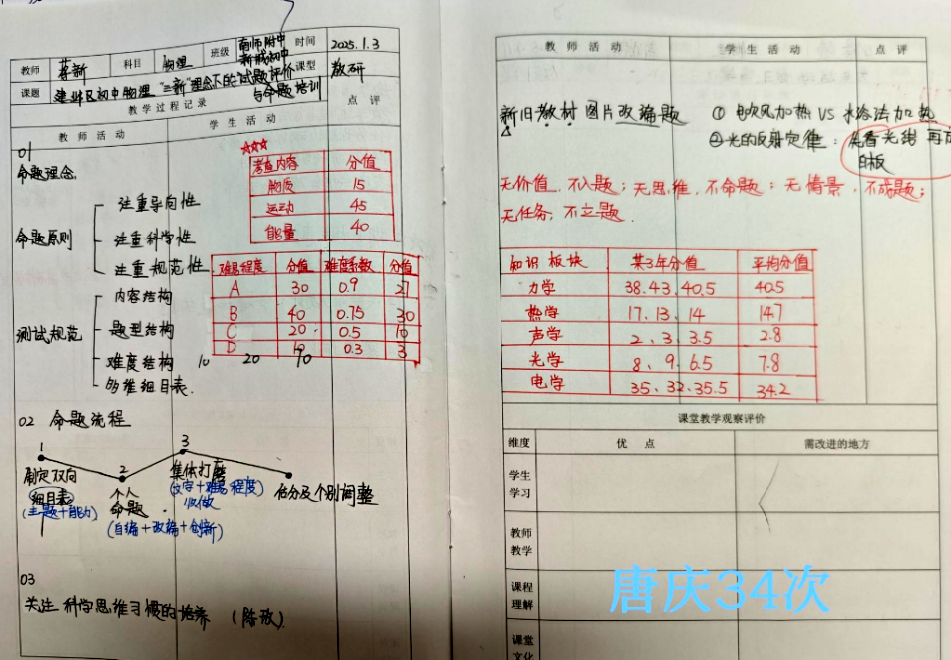 教师 蒋新 科目 物理 班级 南师附中新城初中 时间 2025.1.3
课题 建邺区初中物理“三新”理念下的试题评价与命题培训 课型 教研
教学过程记录 点评
教师活动 学生活动
01
命题理念
命题原则
注重导向性
注重科学性
注重规范性
测试规范
内容结构
题型结构
难度结构 10 20 70
多维细目表.
考查内容 分值
物质 15
运动 45
能量 40
难易程度 分值 难度系数 分值
A 30 0.9 27
B 40 0.75 30
C 20 0.5 10
D 10 0.3 3
02 命题流程
1
制定双向
细目表
(主题+能力)
2
个人
命题
(自编+改编+创新)
3
集体打磨
(文字+难易程度)
估分及个别调整
03
关注科学思维习惯的培养
教师活动 学生活动 点评
新旧教材图片改编题
① 电吹风加热 VS 水浴法加热
②光的反射定律: 先看光线 再
白板
无价值,不入题;无思维,不命题;无情景,不成题;
无任务,不立题.
知识板块 某3年分值 平均分值
力学 38.43.40.5 40.5
热学 17.13.14 14.7
声学 2、3、3.5 2.8
光学 8、9、6.5 7.8
电学 35、32、35.5 34.2
课堂教学观察评价
维度 优点 需改进的地方
学生学习
教师教学
课程理解
课堂文化
唐庆34次